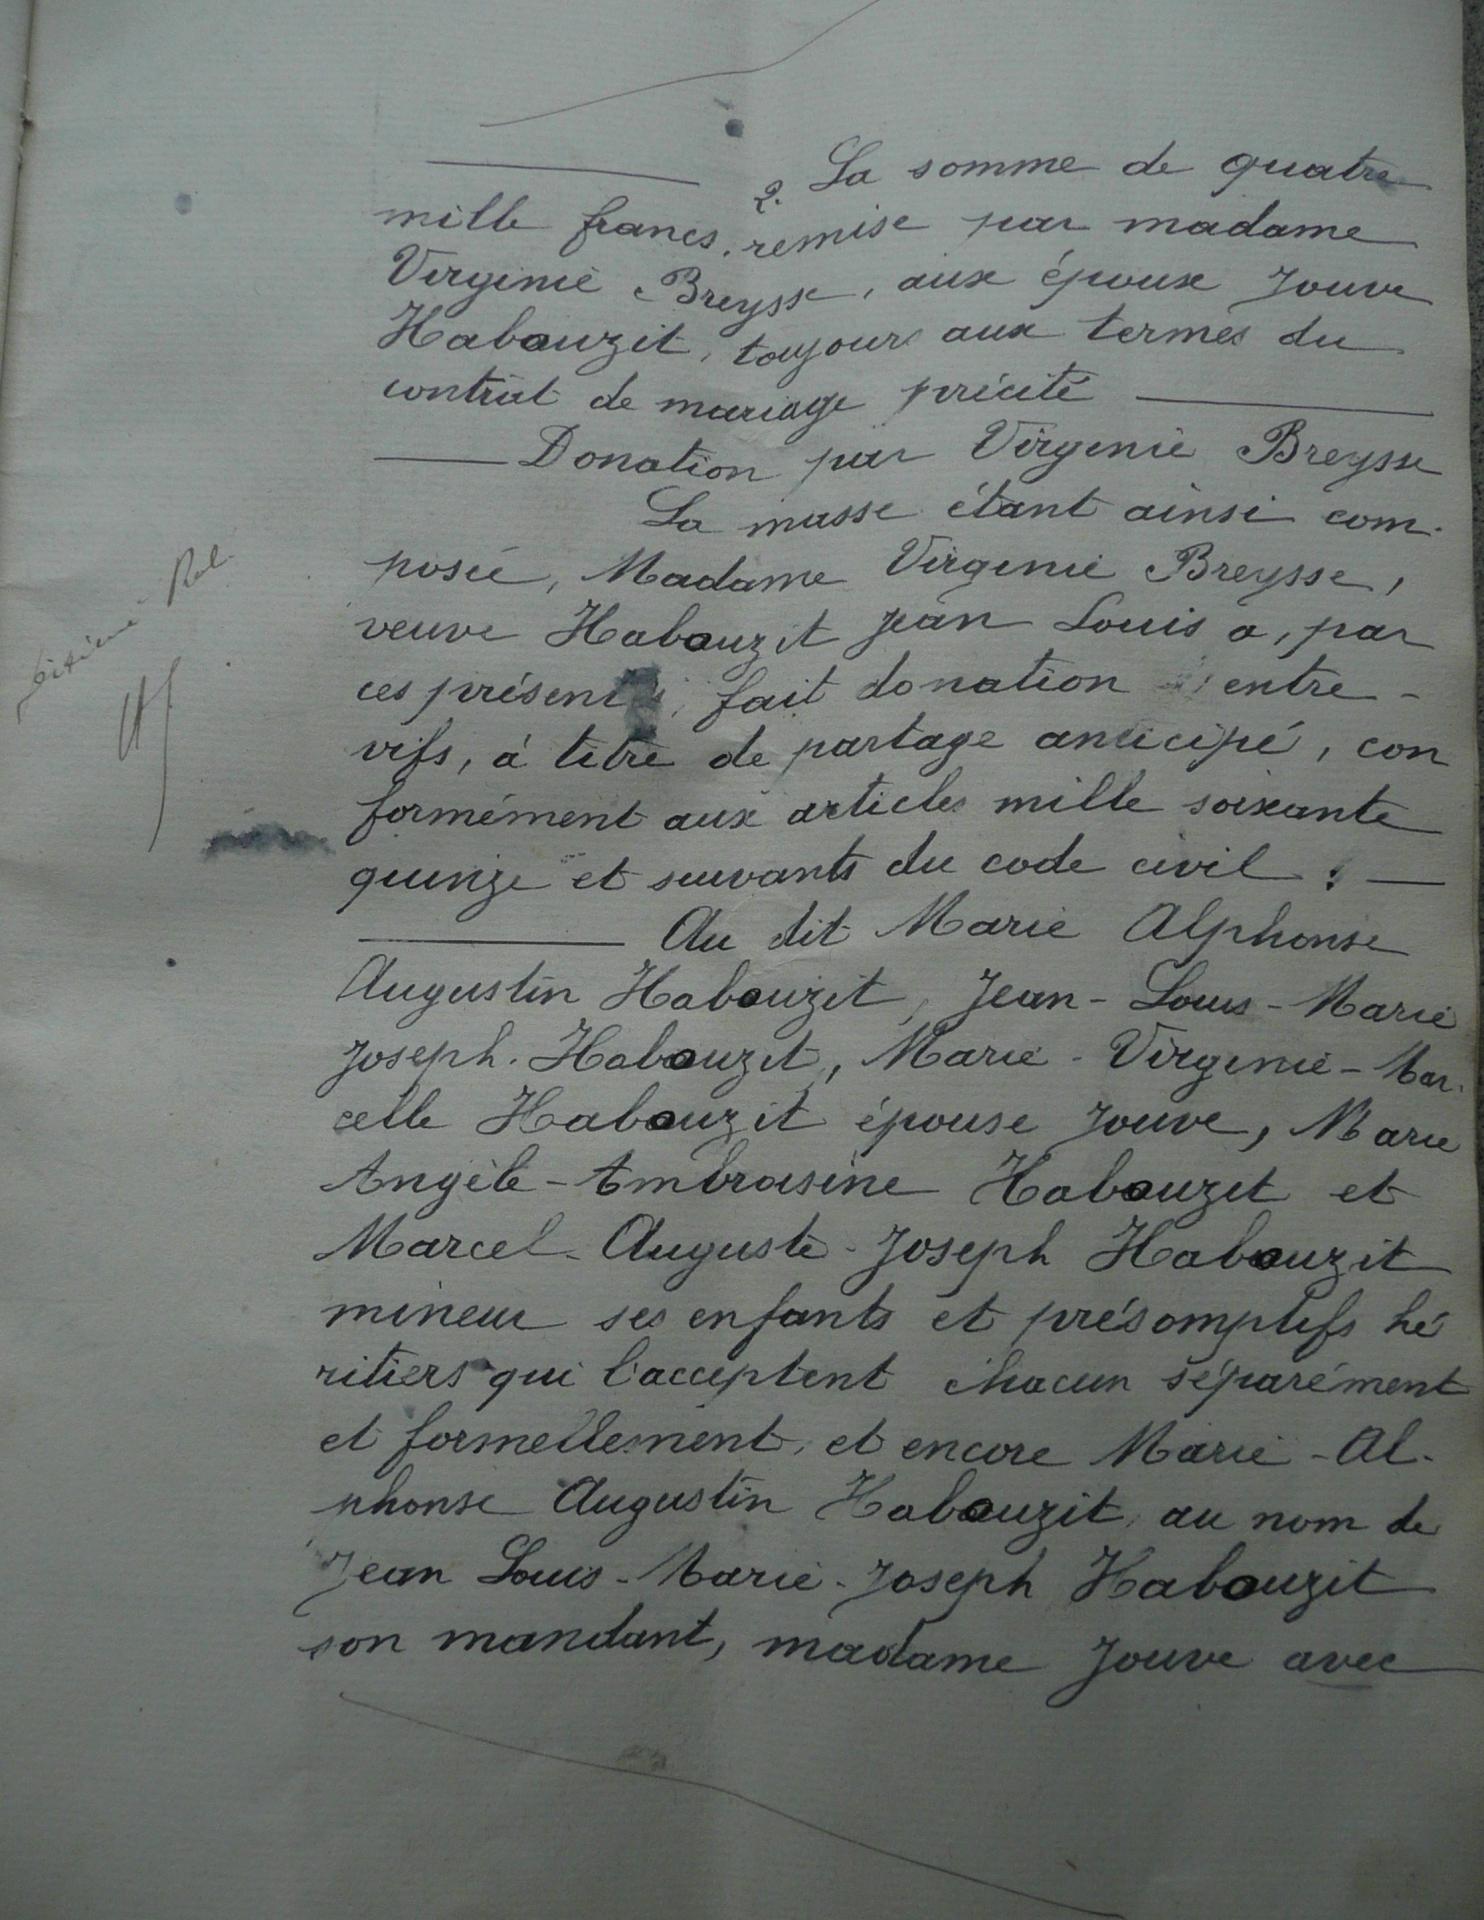 2. La somme de quatre
mille francs, remise par madame
Virginie Breysse, aux époux Jouve
Habouzit, toujours aux termes du
contrat de mariage précité
Donation par Virginie Breysse
La masse étant ainsi com-
posée, Madame Virginie Breysse,
veuve Habouzit Jean Louis a, par
ces présentes, fait donation entre-
vifs, à titre de partage anticipé, con
formément aux articles mille soixante
quinze et suivants du code civil :
Au dit Marie Alphonse
Augustin Habouzit, Jean-Louis-Marie
Joseph. Habouzit, Marie-Virginie-Mar-
celle Habouzit épouse Jouve, Marie
Angèle-Ambroisine Habouzit et
Marcel-Auguste-Joseph Habouzit
mineur ses enfants et présomptifs hé
ritiers qui l'acceptent chacun séparément
et formellement, et encore Marie-Al-
phonse Augustin Habouzit, au nom de
Jean Louis-Marie-Joseph Habouzit
son mandant, madame Jouve avec